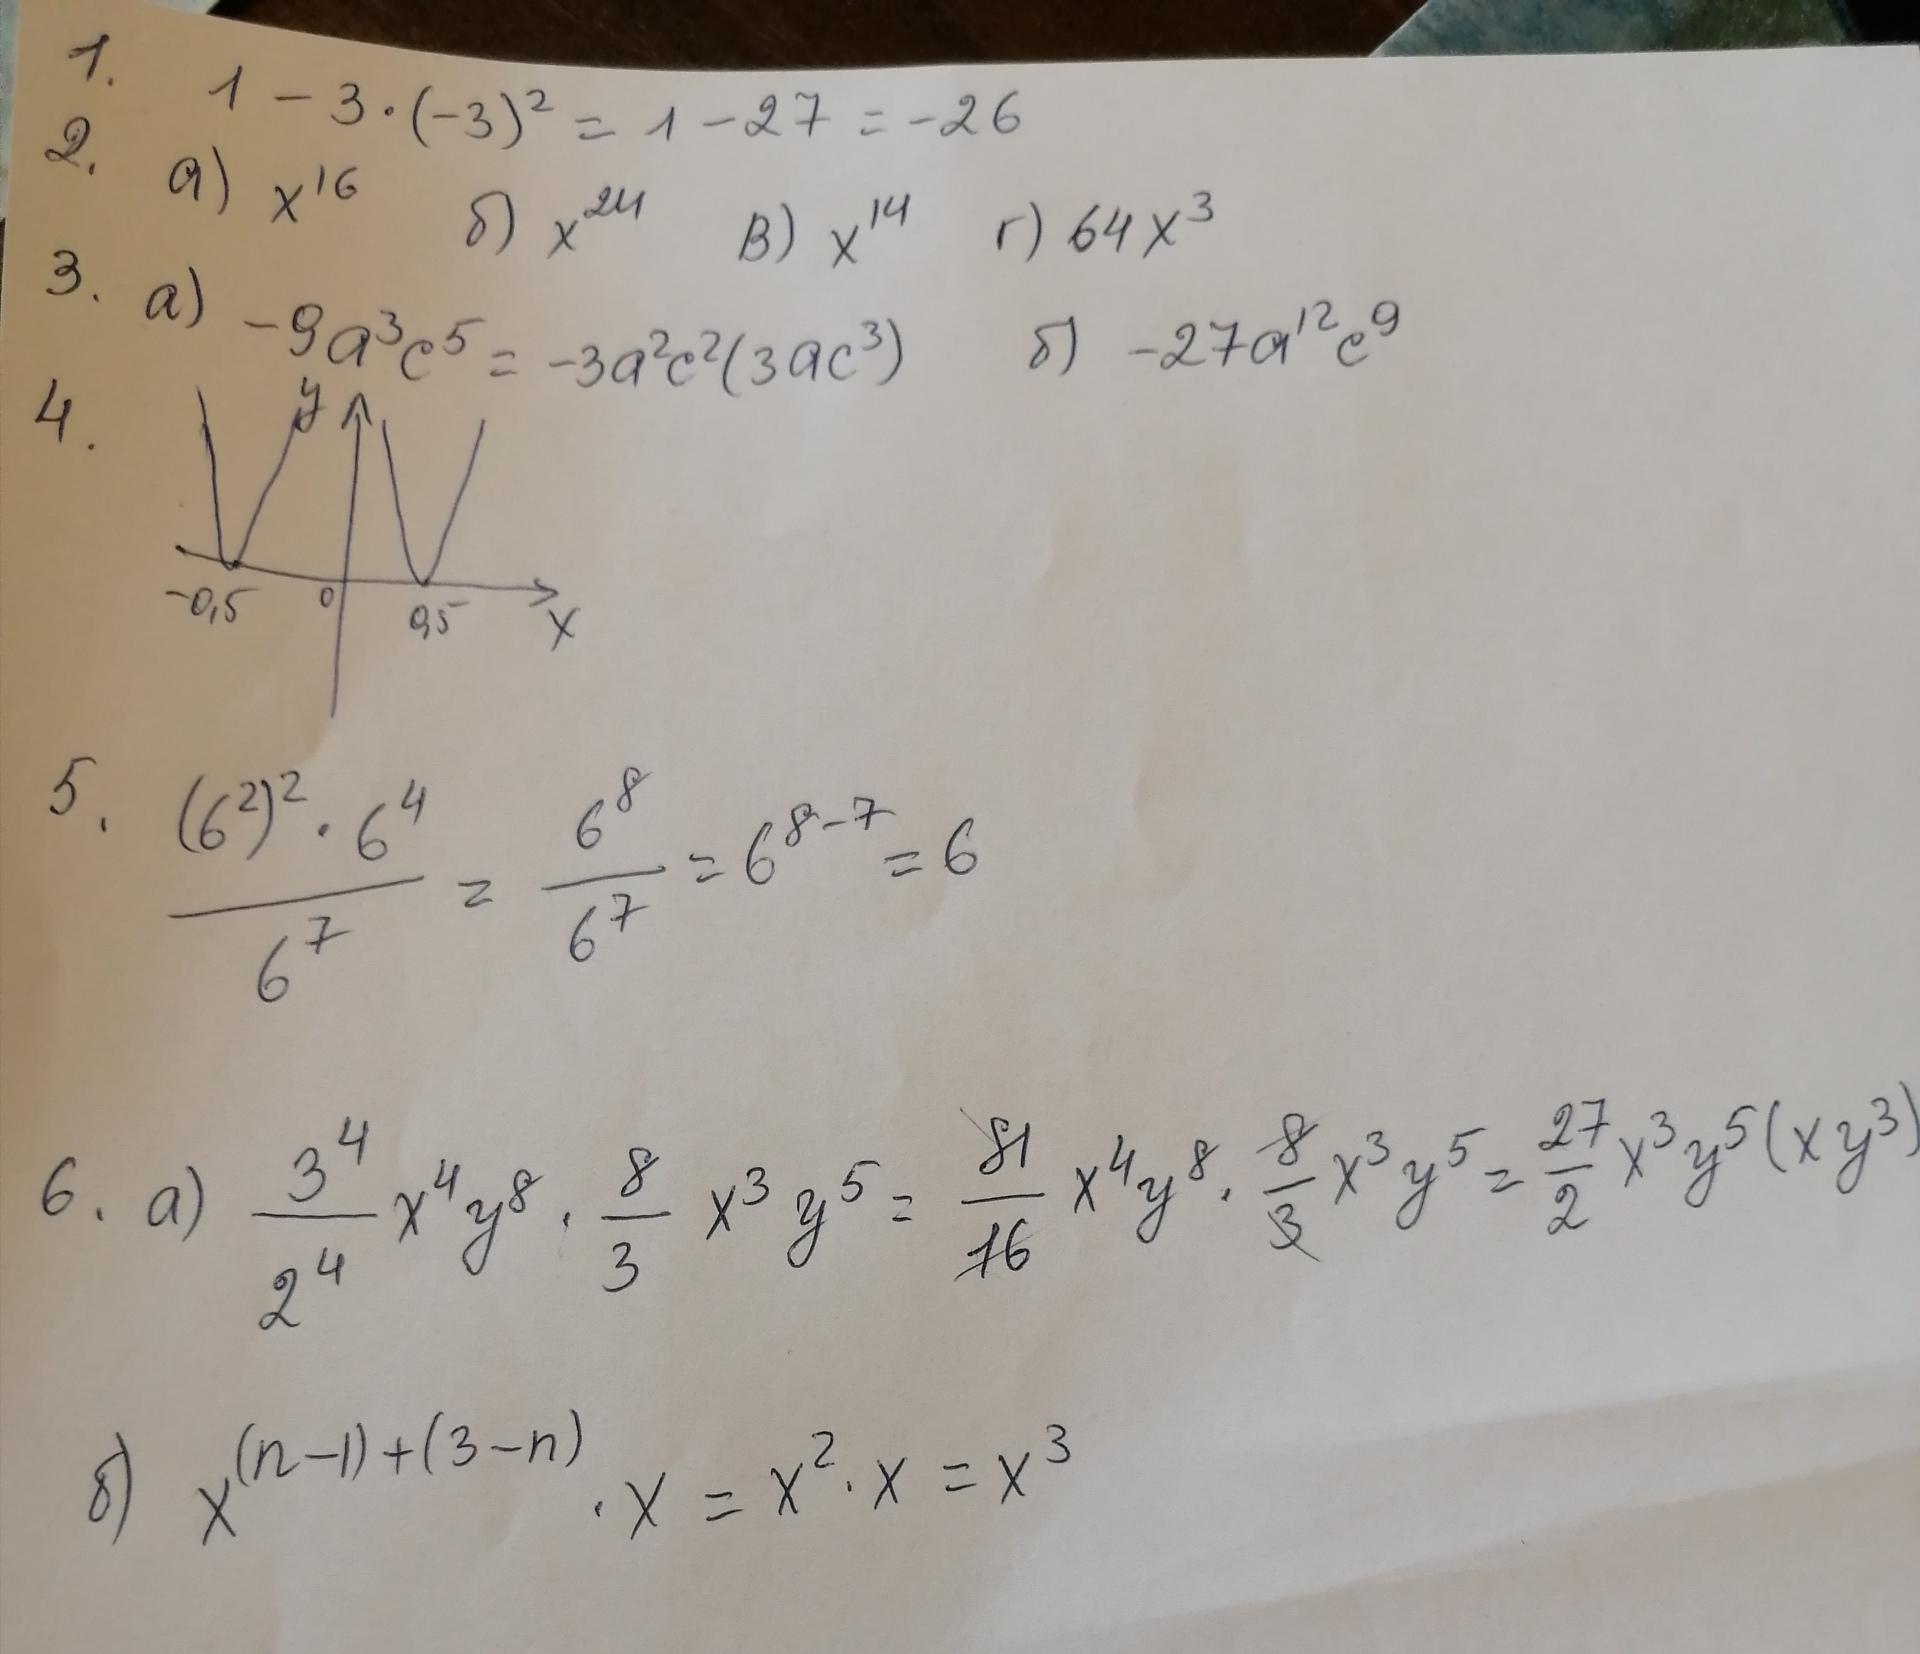 1. 1 - 3·(-3)² = 1 - 27 = -26
2. а) x¹⁶ б) x²⁴ в) x¹⁴ г) 64x³
3. а) -9a³c⁵ = -3a²c²(3ac³) б) -27a¹²c⁹
4. y
-0,5 0 0,5 x
5. (6²)²·6⁴ / 6⁷ = 6⁸ / 6⁷ = 6⁸⁻⁷ = 6
6. а) 3⁴/2⁴ x⁴y⁸ · 8/3 x³y⁵ = 81/16 x⁴y⁸ · 8/3 x³y⁵ = 27/2 x³y⁵(xy³)
б) x⁽ⁿ⁻¹⁾⁺⁽³⁻ⁿ⁾ · x = x²·x = x³